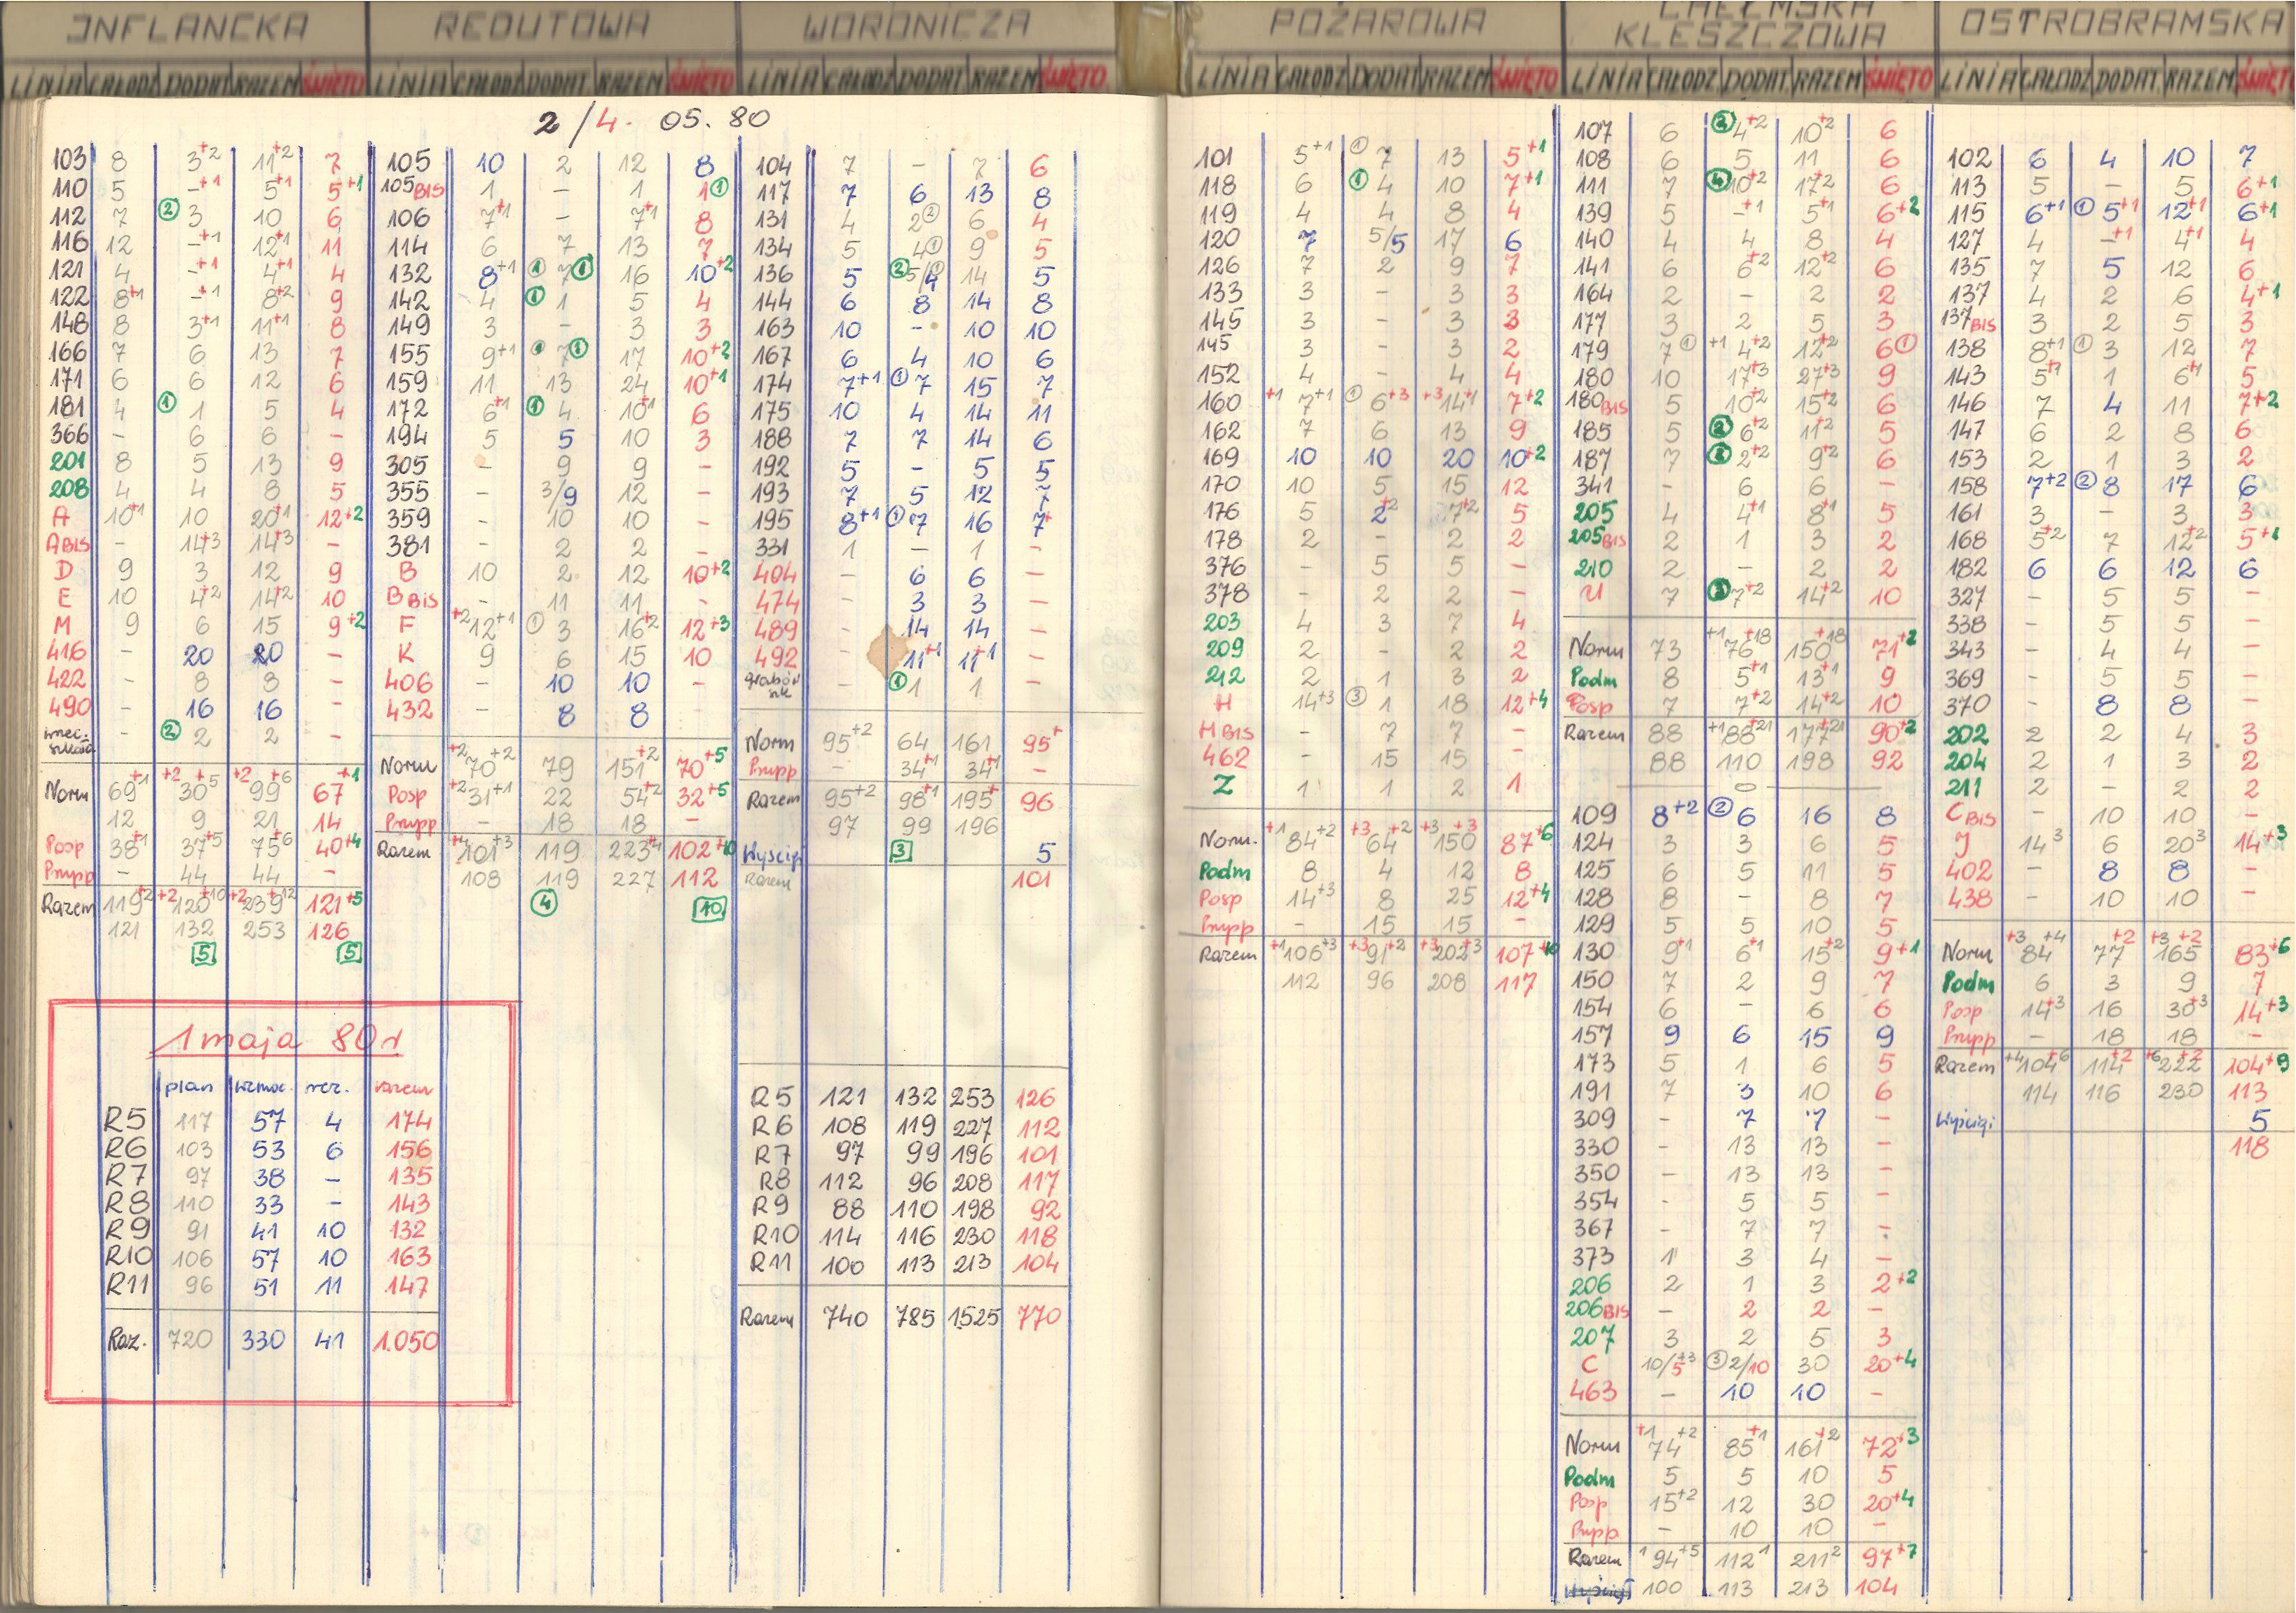 INFLANCKA
LINIA CAŁODZ DODAT RAZEM ŚWIĘTO
2/4. 05. 80
103 8 3+2 11+2 7
110 5 -+1 5+1 5+1
112 7 ② 3 10 6
116 12 -+1 12+1 11
121 4 -+1 4+1 4
122 8+1 -+1 8+2 9
148 8 3+1 11+1 8
166 7 6 13 7
171 6 6 12 6
181 4 ① 1 5 4
366 - 6 6 -
201 8 5 13 9
208 4 4 8 5
A 10+1 10 20+1 12+2
A BIS - 14+3 14+3 -
D 9 3 12 9
E 10 4+2 14+2 10
M 9 6 15 9+2
416 - 20 20 -
422 - 8 8 -
490 - 16 16 -
- ② 2 2 -
Norm 69+1 +2 30+5 +2 99+6 67+1
12 9 21 14
Posp 38+1 37+5 75+6 40+4
Prupp - 44 44 -
Razem 119+2 +2 120+10 +2 239+12 121+5
121 132 253 126
5 5
1 maja 80r
plan wzmoc. rez. razem
R5 117 57 4 174
R6 103 53 6 156
R7 97 38 - 135
R8 110 33 - 143
R9 91 41 10 132
R10 106 57 10 163
R11 96 51 11 147
Raz. 720 330 41 1.050
REDUTOWA
LINIA CAŁODZ DODAT RAZEM ŚWIĘTO
105 10 2 12 8
105 BIS 1 - 1 1 ①
106 7+1 - 7+1 8
114 6 7 13 7
132 8+1 ① 7 ① 16 10+2
142 4 ① 1 5 4
149 3 - 3 3
155 9+1 7 ① 17 10+2
159 11 13 24 10+1
172 6+1 ① 4 10+1 6
194 5 5 10 3
305 - 9 9 -
355 - 3/9 12 -
359 - 10 10 -
381 - 2 2 -
B 10 2 12 10+2
B BIS - 11 11 -
F +2 12+1 ① 3 16+2 12+3
K 9 6 15 10
406 - 10 10 -
432 - 8 8 -
Norm +2 70+2 79 151+2 70+5
Posp +2 31+1 22 54+2 32+5
Prupp - 18 18 -
Razem +4 101+3 119 223+4 102+10
108 119 227 112
④ 10
WORONICZA
LINIA CAŁODZ DODAT RAZEM ŚWIĘTO
104 7 - 7 6
117 7 6 13 8
131 4 2② 6 4
134 5 4① 9 5
136 5 ② 5/4 ① 14 5
144 6 8 14 8
163 10 - 10 10
167 6 4 10 6
174 7+1 ① 7 15 7
175 10 4 14 11
188 7 7 14 6
192 5 - 5 5
193 7 5 12 7
195 8+1 ① 7 16 7+
331 1 - 1 -
404 - 6 6 -
474 - 3 3 -
489 - 14 14 -
492 - 11+1 11+1 -
- ① 1 1 -
Norm 95+2 64 161 95+
Prupp - 34+1 34+1 -
Razem 95+2 98+1 195+ 96
97 99 196
Wyścigi 3 5
Razem 101
R5 121 132 253 126
R6 108 119 227 112
R7 97 99 196 101
R8 112 96 208 117
R9 88 110 198 92
R10 114 116 230 118
R11 100 113 213 104
Razem 740 785 1525 770
POŻAROWA
LINIA CAŁODZ DODAT RAZEM ŚWIĘTO
101 5+1 ① 7 13 5+1
118 6 ① 4 10 7+1
119 4 4 8 4
120 7 5/5 17 6
126 7 2 9 7
133 3 - 3 3
145 3 - 3 3
145 3 - 3 2
152 4 - 4 4
160 +1 7+1 ① 6+3 +3 14+1 7+2
162 7 6 13 9
169 10 10 20 10+2
170 10 5 15 12
176 5 2+2 7+2 5
178 2 - 2 2
376 - 5 5 -
378 - 2 2 -
203 4 3 7 4
209 2 - 2 2
212 2 1 3 2
H 14+3 ③ 1 18 12+4
H BIS - 7 7 -
462 - 15 15 -
Z 1 1 2 1
Norm. +1 84+2 +3 64+2 +3 150+3 87+6
Podm 8 4 12 8
Posp 14+3 8 25 12+4
Prupp - 15 15 -
Razem +1 106+3 +3 91+2 +3 202+3 107+10
112 96 208 117
CHEŁMSKA
KLESZCZOWA
LINIA CAŁODZ DODAT RAZEM ŚWIĘTO
107 6 ② 4+2 10+2 6
108 6 5 11 6
111 7 ④ 10+2 17+2 6
139 5 -+1 5+1 6+2
140 4 4 8 4
141 6 6+2 12+2 6
164 2 - 2 2
177 3 2 5 3
179 7① +1 4+2 12+2 6①
180 10 17+3 27+3 9
180 BIS 5 10+2 15+2 6
185 5 ② 6+2 11+2 5
187 7 ② 2+2 9+2 6
341 - 6 6 -
205 4 4+1 8+1 5
205 BIS 2 1 3 2
210 2 - 2 2
U 7 ③ 7+2 14+2 10
Norm 73 +1 76+18 150+18 71+2
Podm 8 5+1 13+1 9
Posp 7 7+2 14+2 10
Razem 88 +1 88+21 177+21 90+2
88 110 198 92
109 8+2 ② 6 16 8
124 3 3 6 5
125 6 5 11 5
128 8 - 8 7
129 5 5 10 5
130 9+1 6+1 15+2 9+1
150 7 2 9 7
154 6 - 6 6
157 9 6 15 9
173 5 1 6 5
191 7 3 10 6
309 - 7 7 -
330 - 13 13 -
350 - 13 13 -
354 - 5 5 -
367 - 7 7 -
373 1 3 4 -
206 2 1 3 2+2
206 BIS - 2 2 -
207 3 2 5 3
C 10/5+3 ③ 2/10 30 20+4
463 - 10 10 -
Norm +1 74+2 85+1 161+2 72+3
Podm 5 5 10 5
Posp 15+2 12 30 20+4
Prupp - 10 10 -
Razem 1 94+5 112 1 211 2 97+7
Wyścigi 100 113 213 104
OSTROBRAMSKA
LINIA CAŁODZ DODAT RAZEM ŚWIĘTO
102 6 4 10 7
113 5 - 5 6+1
115 6+1 ① 5+1 12+1 6+1
127 4 -+1 4+1 4
135 7 5 12 6
137 4 2 6 4+1
137 BIS 3 2 5 3
138 8+1 ① 3 12 7
143 5+1 1 6+1 5
146 7 4 11 7+2
147 6 2 8 6
153 2 1 3 2
158 7+2 ② 8 17 6
161 3 - 3 3
168 5+2 7 12+2 5+1
182 6 6 12 6
327 - 5 5 -
338 - 5 5 -
343 - 4 4 -
369 - 5 5 -
370 - 8 8 -
202 2 2 4 3
204 2 1 3 2
211 2 - 2 2
C BIS - 10 10 -
J 14 3 6 20 3 14+3
402 - 8 8 -
438 - 10 10 -
Norm +3 84+4 77+2 +3 165+2 83+6
Podm 6 3 9 7
Posp 14+3 16 30+3 14+3
Prupp - 18 18 -
Razem +4 104+6 114+2 +6 222+2 104+9
114 116 230 113
Wyścigi 5
118